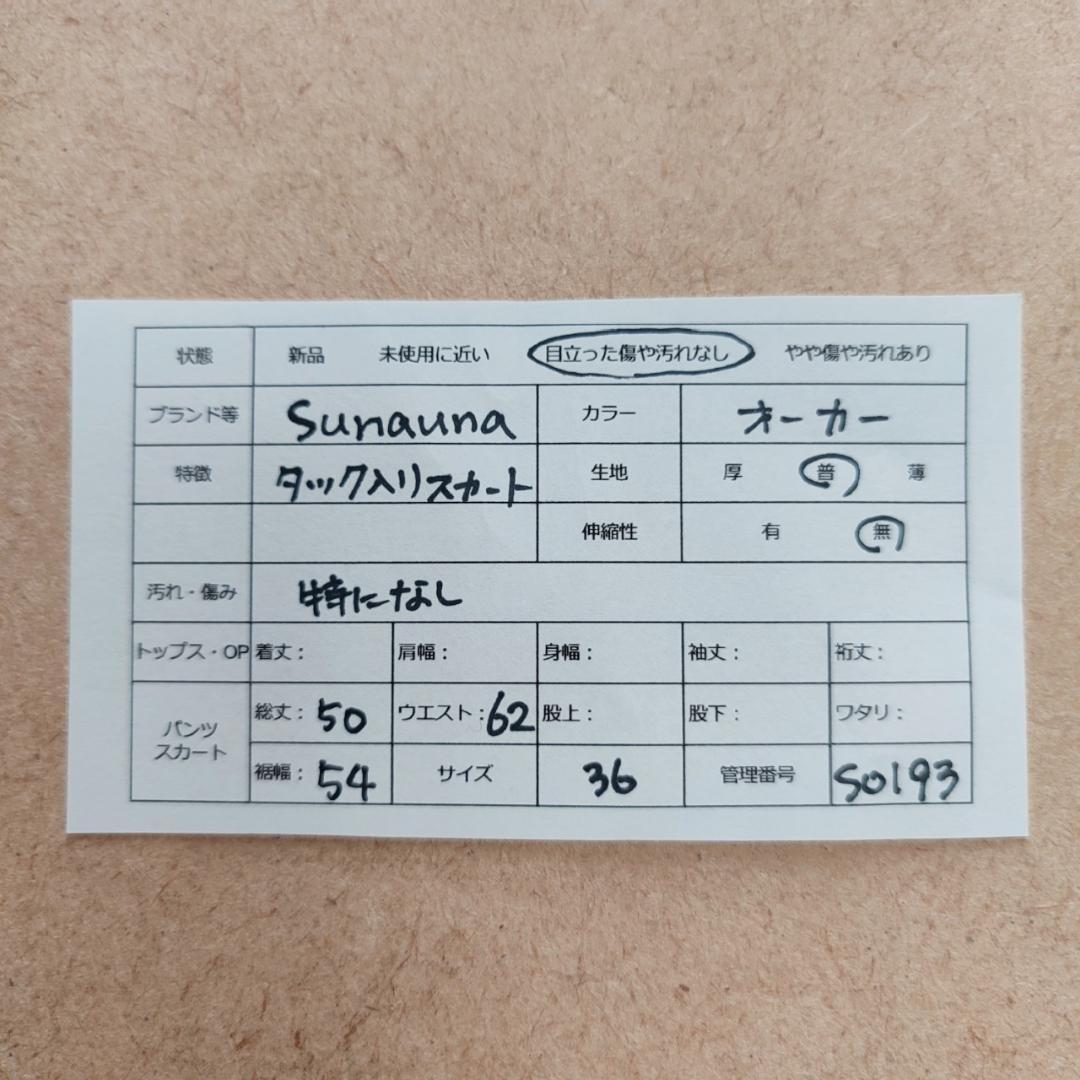 状態 新品 未使用に近い 目立った傷や汚れなし やや傷や汚れあり
ブランド等 Sunauna カラー オーカー
特徴 タック入りスカート 生地 厚 普 薄
伸縮性 有 無
汚れ・傷み 特になし
トップス・OP 着丈: 肩幅: 身幅: 袖丈: 裄丈:
パンツ スカート 総丈: 50 ウエスト: 62 股上: 股下: ワタリ:
裾幅: 54 サイズ 36 管理番号 S0193